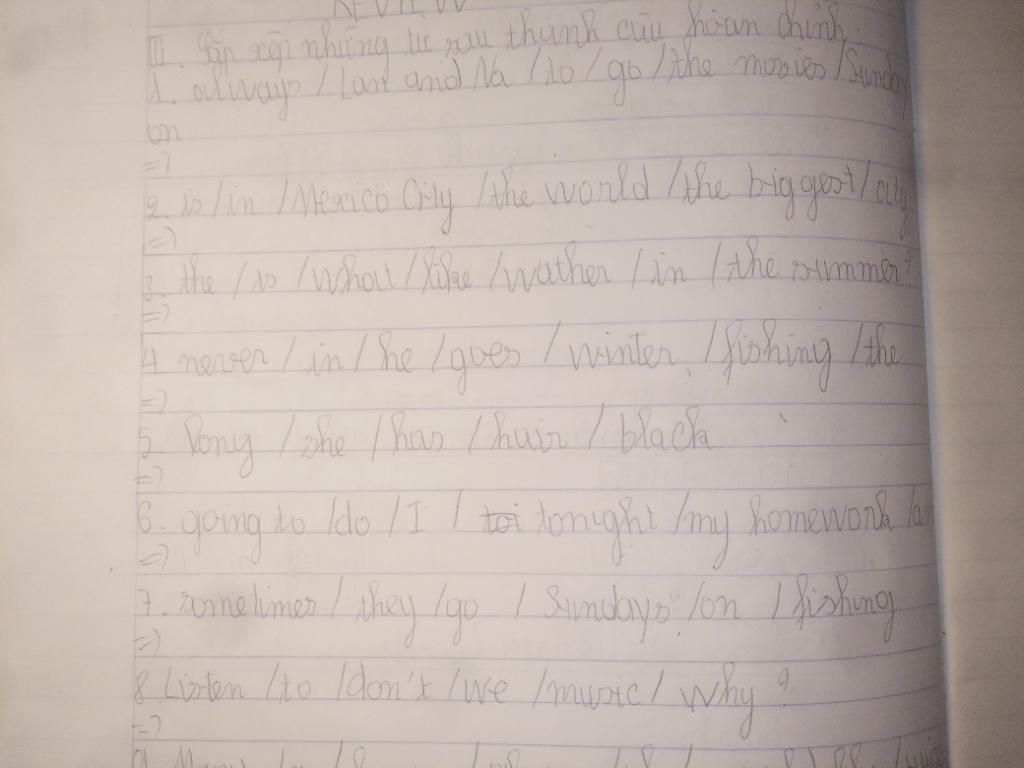 REVIEW
III. Sắp xếp những từ sau thành câu hoàn chỉnh.
1. always / Lan and Na / to / go / the movies / Sunday
on
=>
2. is / in / Mexico City / the world / the biggest / city
=>
3. the / is / what / like / wather / in / the summer?
=>
4. never / in / he / goes / winter, / fishing / the
=>
5. long / she / has / hair / black
=>
6. going to / do / I / tonight / my homework /
=>
7. sometimes / they / go / Sundays / on / fishing
=>
8. Listen / to / don't / we / music / why?
=>
9.